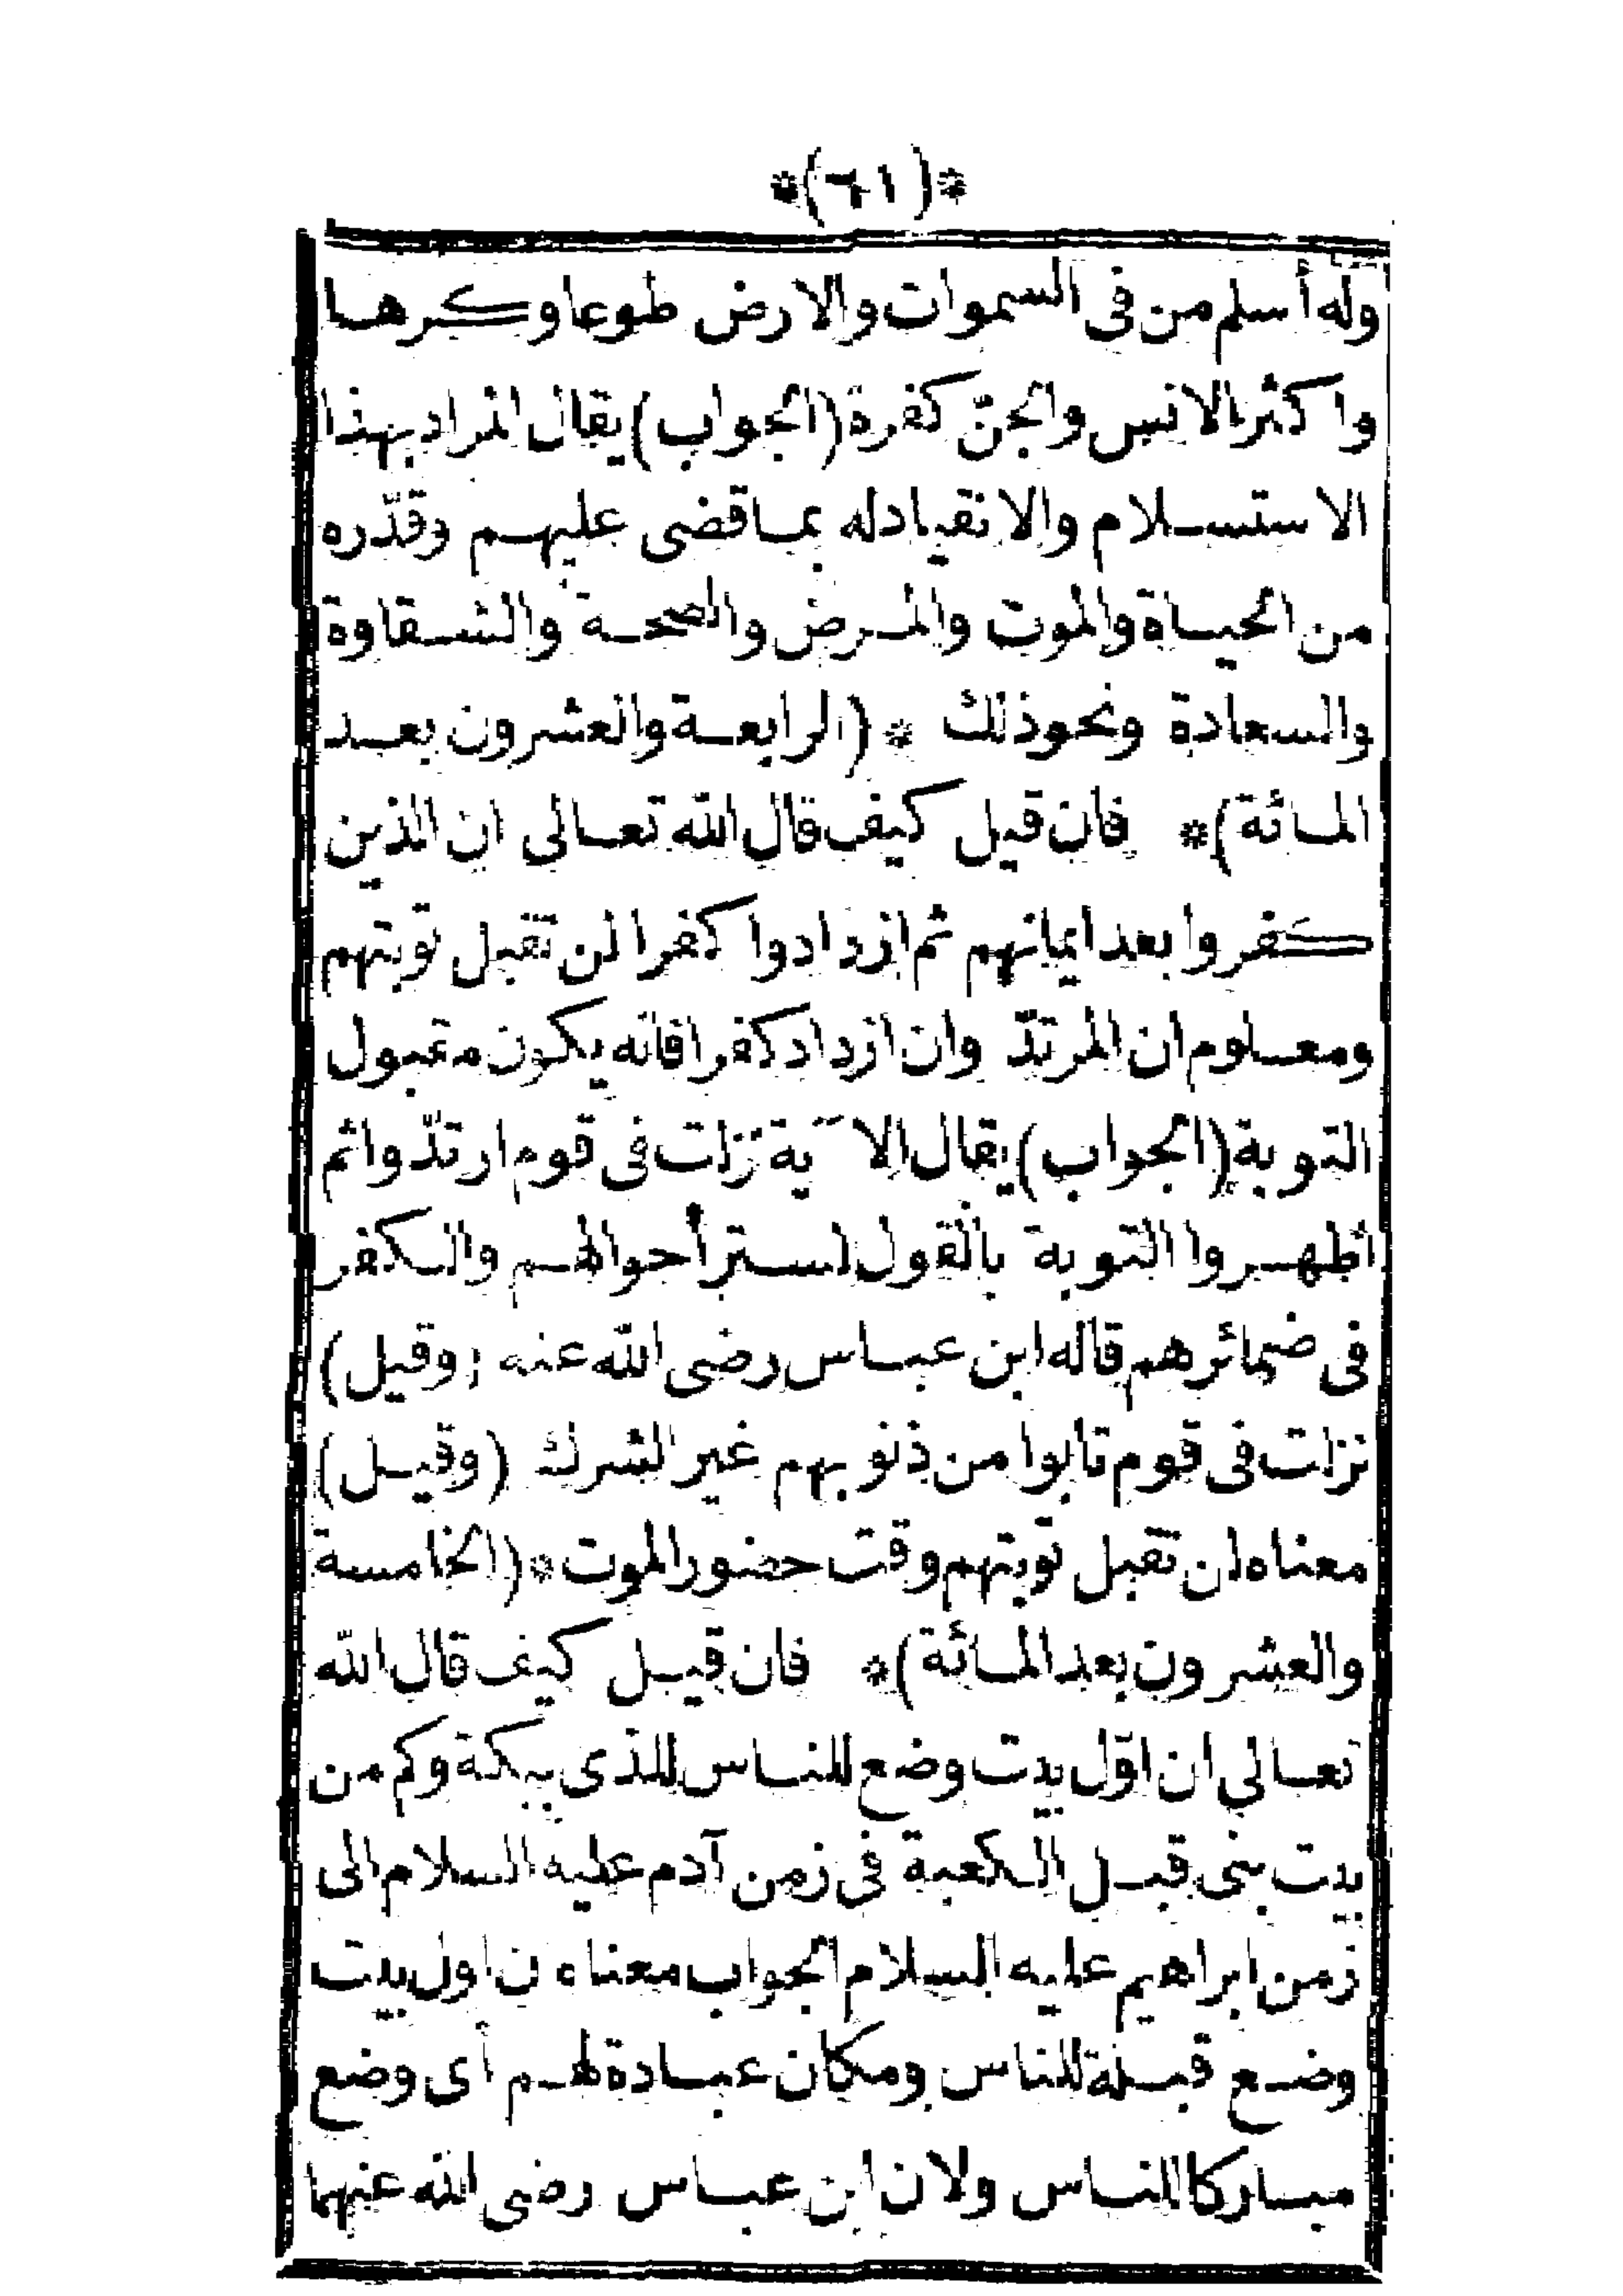 *(٦١)*
وله أسلم من فى السموات والارض طوعا وكرها
واكثر الانس والجنّ كفرة (الجواب) يقال المراد بهذا
الاستسلام والانقياد له بما قضى عليهم وقدّره
من الحياة والموت والمرض والصحة والشقاوة
والسعادة ونحو ذلك * (الرابعة والعشرون بعد
المائة)* فان قيل كيف قال الله تعالى ان الذين
كفروا بعد ايمانهم ثم ازدادوا كفرا لن تقبل توبتهم
ومعلوم ان المرتدّ وان ازداد كفرا فانه يكون مقبول
التوبة (الجواب) يقال الآية نزلت فى قوم ارتدّوا ثم
اظهروا التوبة بالقول لستر أحوالهم والكفر
فى ضمائرهم قاله ابن عباس رضى الله عنه (وقيل)
نزلت فى قوم تابوا من ذنوبهم غير الشرك (وقيل)
معناه لن تقبل توبتهم وقت حضور الموت *(الخامسة
والعشرون بعد المائة)* فان قيل كيف قال الله
تعالى ان اوّل بيت وضع للناس للذى ببكة وكم من
بيت بنى قبل الكعبة فى زمن آدم عليه السلام الى
زمن ابراهيم عليه السلام الجواب معناه ن اول بيت
وضع قبلة للناس ومكان عبادة لهم أى وضع
مباركا للناس ولان ابن عباس رضى الله عنهما